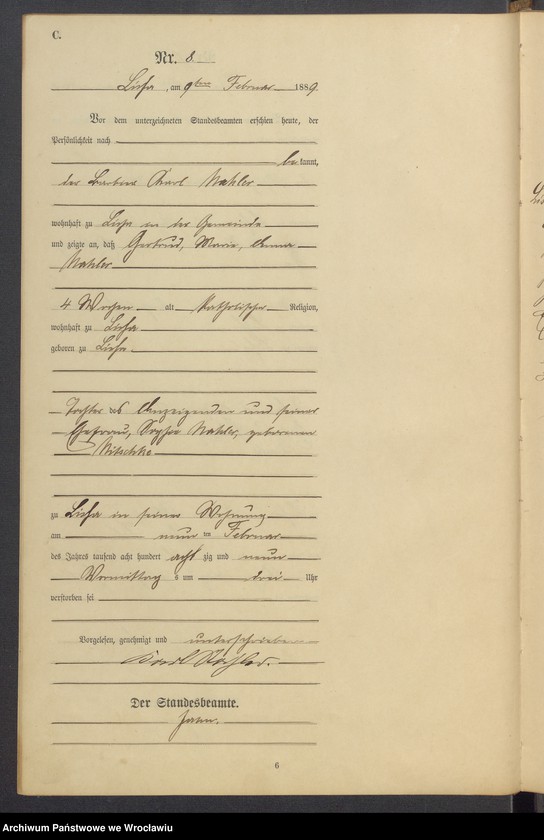 C.
Nr. 8
Lissa, am 9ten Februar 1889.
Vor dem unterzeichneten Standesbeamten erschien heute, der
Persönlichkeit nach
bekannt,
der Karl Nahler
wohnhaft zu Lissa in der Gemeinde
und zeigte an, daß Gertrud, Maria, Anna
Nahler
4 Wochen alt katholischer Religion,
wohnhaft zu Lissa
geboren zu Lissa
Tochter des Anzeigenden und seiner
Ehefrau, Sophie Nahler, geborenen
Nitschke
zu Lissa in seiner Wohnung
am neun ten Februar
des Jahres tausend acht hundert achtzig und neun
Vormittag s um drei Uhr
verstorben sei
Vorgelesen, genehmigt und unterschrieben
Karl
Der Standesbeamte.
6
Archiwum Państwowe we Wrocławiu